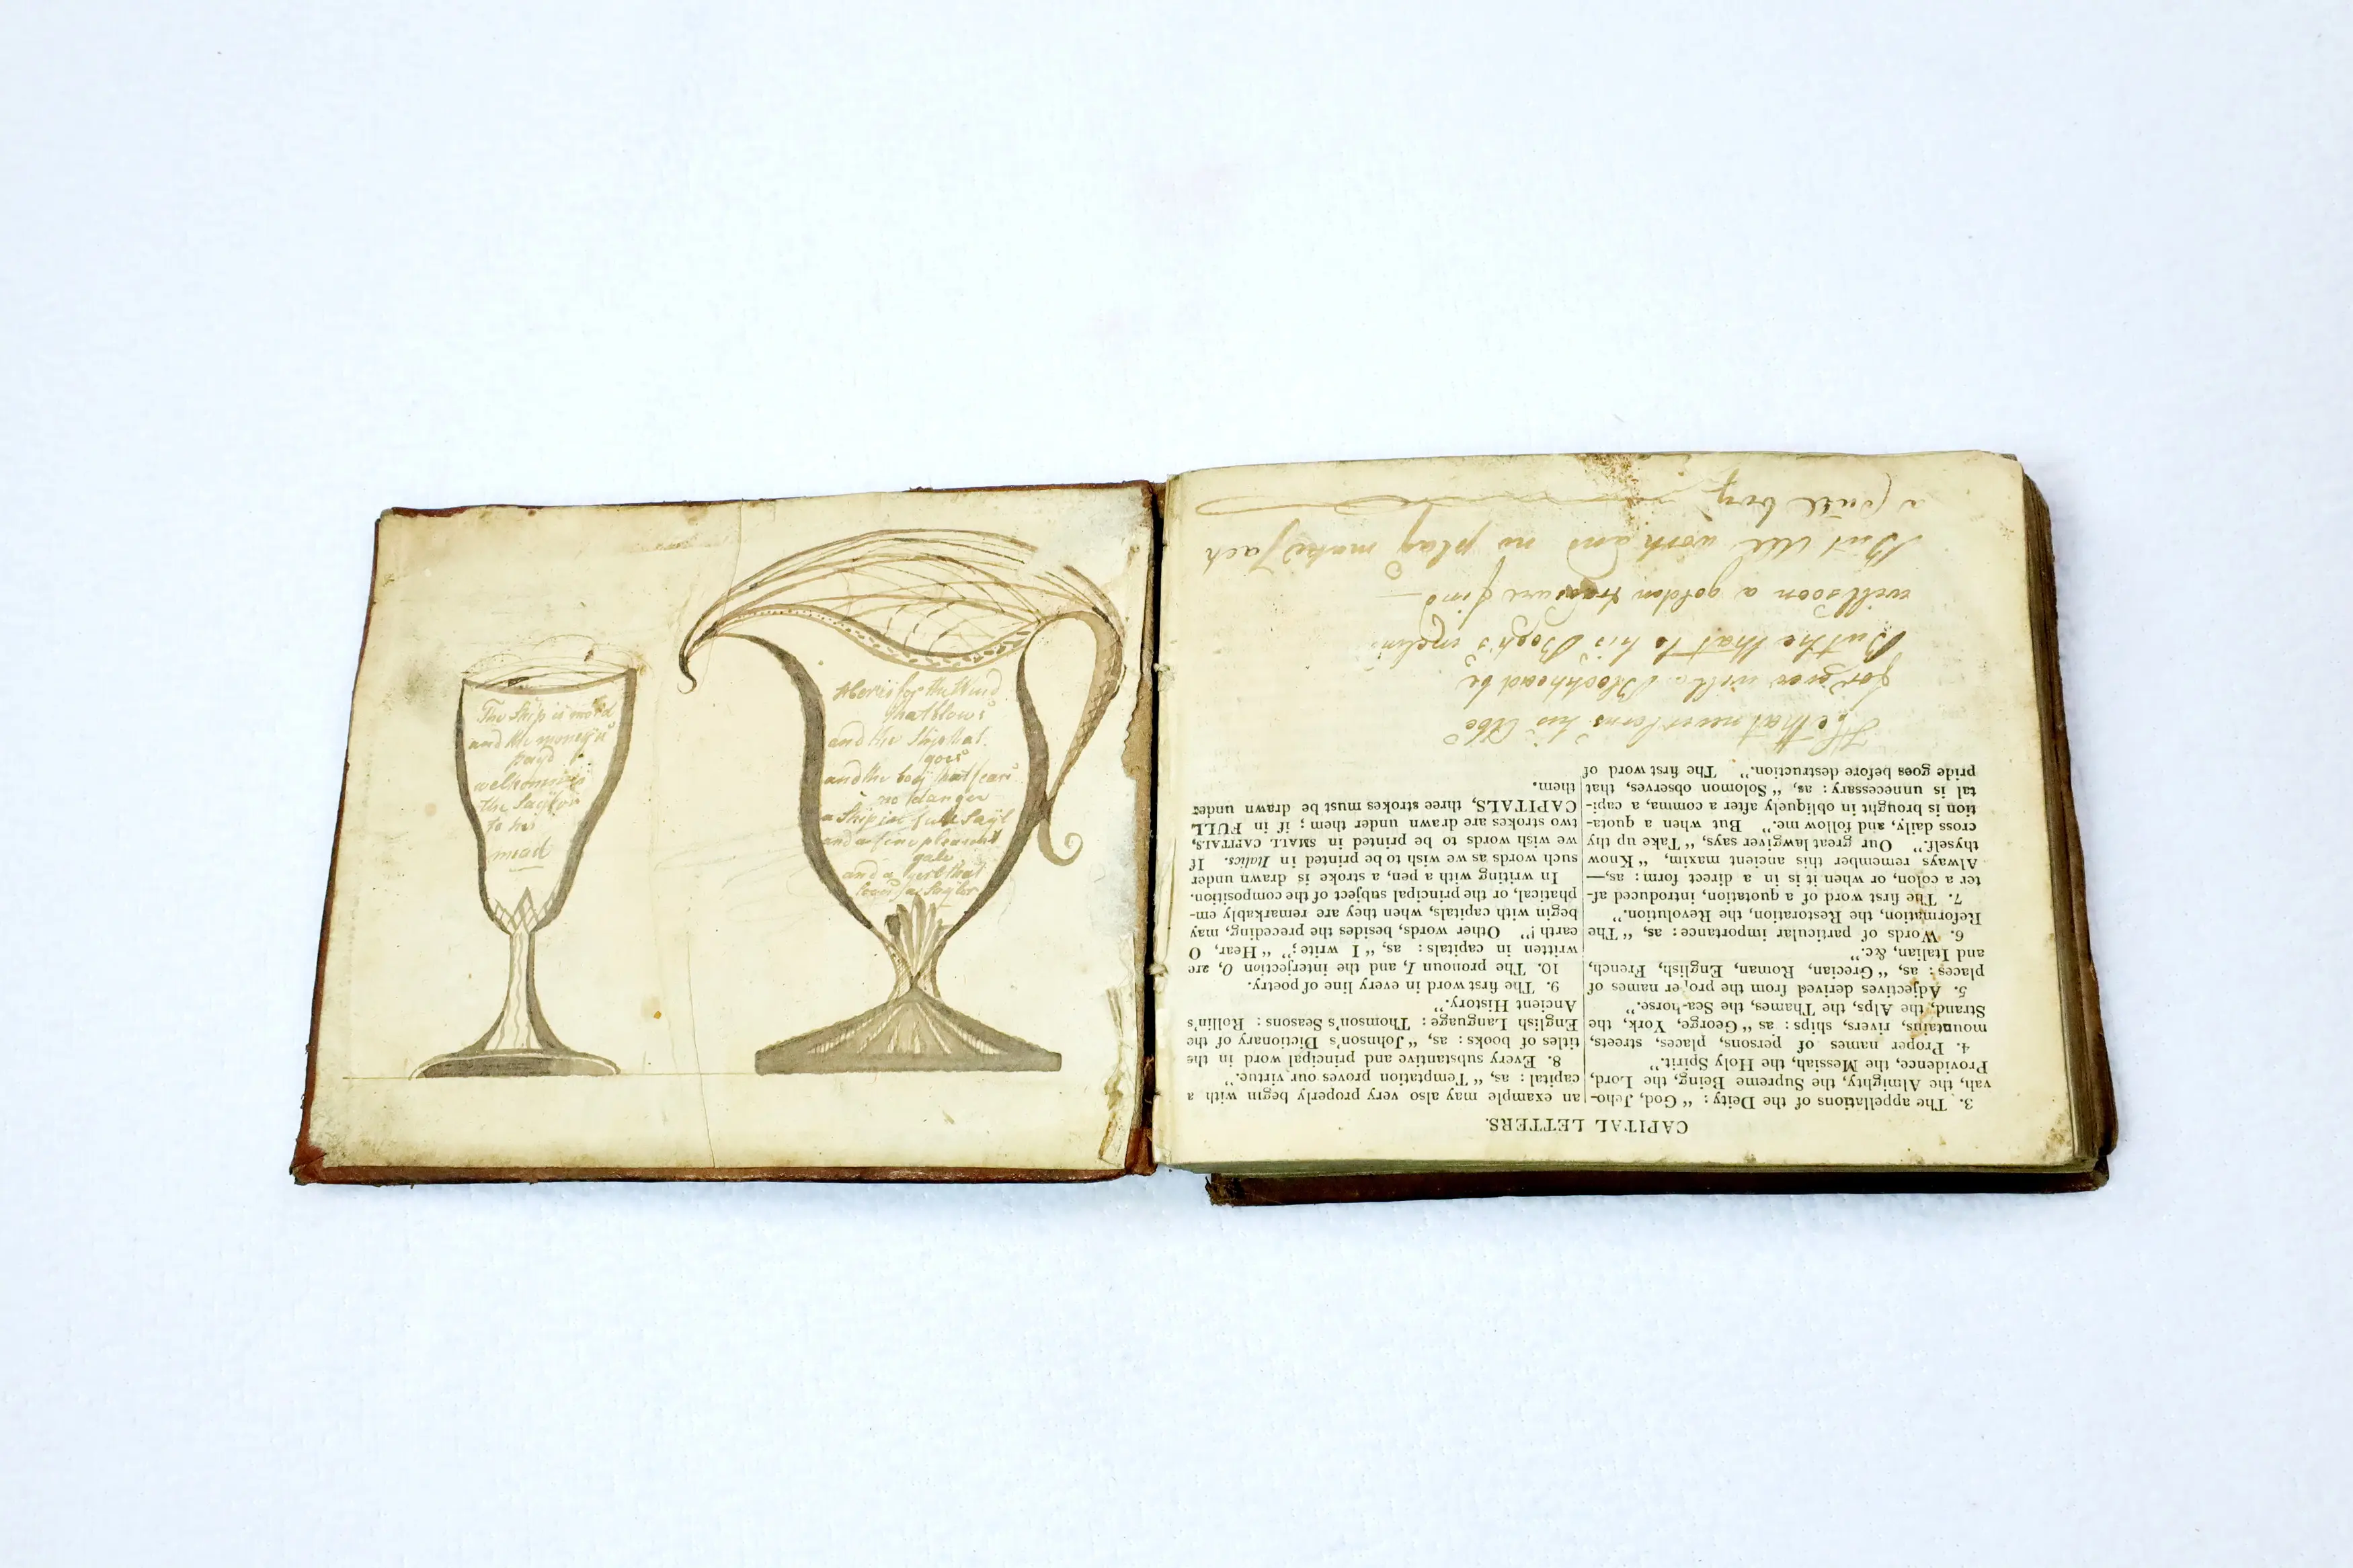 The Ship is mord
and the money's
payd
welkom is
the Saylor
to his
mead
Here is for the Wind
that blows
and the Ship that
goes
and the boy that fears
no danger
a Ship in full Sayl
and a fine pleasant
gale
and a girl that
loves a Saylor
CAPITAL LETTERS.
3. The appellations of the Deity: “ God, Jeho-
vah, the Almighty, the Supreme Being, the Lord,
Providence, the Messiah, the Holy Spirit.”
4. Proper names of persons, places, streets,
mountains, rivers, ships: as “ George, York, the
Strand, the Alps, the Thames, the Sea-horse.”
5. Adjectives derived from the proper names of
places: as, “ Grecian, Roman, English, French,
and Italian, &c.”
6. Words of particular importance: as, “ The
Reformation, the Restoration, the Revolution.”
7. The first word of a quotation, introduced af-
ter a colon, or when it is in a direct form: as,—
Always remember this ancient maxim, “ Know
thyself.” Our great lawgiver says, “ Take up thy
cross daily, and follow me.” But when a quota-
tion is brought in obliquely after a comma, a capi-
tal is unnecessary: as, “ Solomon observes, that
pride goes before destruction.” The first word of
an example may also very properly begin with a
capital: as, “ Temptation proves our virtue.”
8. Every substantive and principal word in the
titles of books: as, “ Johnson's Dictionary of the
English Language: Thomson's Seasons: Rollin's
Ancient History.”
9. The first word in every line of poetry.
10. The pronoun I, and the interjection O, are
written in capitals: as, “ I write;” “ Hear, O
earth!” Other words, besides the preceding, may
begin with capitals, when they are remarkably em-
phatical, or the principal subject of the composition.
In writing with a pen, a stroke is drawn under
such words as we wish to be printed in Italics. If
we wish words to be printed in SMALL CAPITALS,
two strokes are drawn under them; if in FULL
CAPITALS, three strokes must be drawn under
them.
He that never lerns his Abc
for ever will a Blockhead be
But he that to his Book's inclin
will soon a golden treasure find
But All work and no play makes Jack
a boy